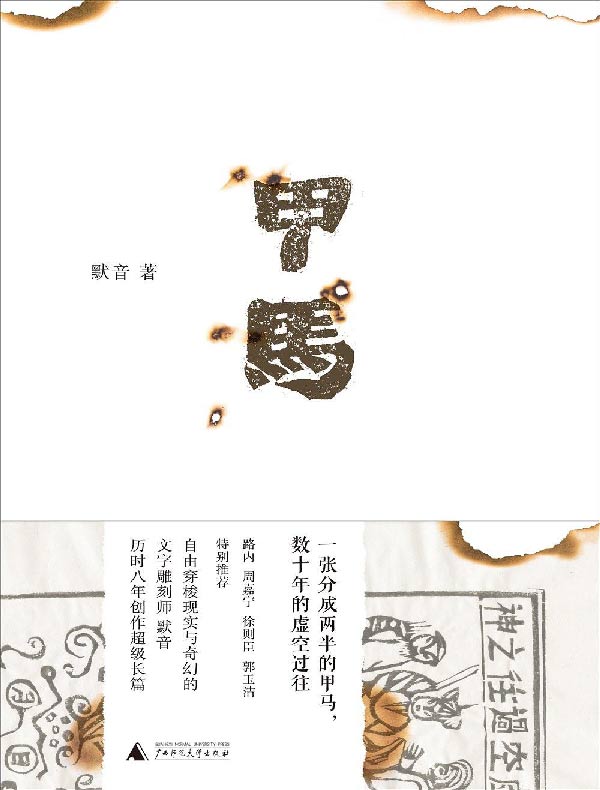 甲馬
默音 著
一张分成两半的甲马，
数十年的虚空过往
路内 周嘉宁 徐则臣 郭玉洁
特别推荐
自由穿梭现实与奇幻的
文字雕刻师 默音
历时八年创作超级长篇
神之往過空虛
GUANGXI NORMAL UNIVERSITY PRESS
广西师范大学出版社